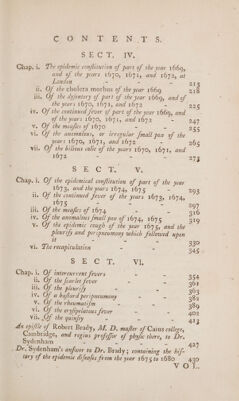 CONTENTS.
SECT. IV.
Chap. i. The epidemic constitution of part of the year 1669,
and of the years 1670, 1671, and 1672, at
London - 213
ii. Of the cholera morbus of the year 1669 218
iii. Of the dysentery of part of the year 1669, and of
the years 1670, 1671, and 1672 225
iv. Of the continued fever of part of the year 1669, and
of the years 1670, 1671, and 1672 247
v. Of the measles of 1670 - 255
vi. Of the anomalous, or irregular small pox of the
years 1670, 1671, and 1672 - 265
vii. Of the bilious colic of the years 1670, 1671, and
1672 - - 273
SECT. V.
Chap. i. Of the epidemical constitution of part of the year
1673, and the years 1674, 1675 293
ii. Of the continued fever of the years 1673, 1674,
1675 - - 297
iii. Of the measles of 1674 - 316
iv. Of the anomalous small pox of 1674, 1675 319
v. Of the epidemic cough of the year 1675, and the
pleurisy and peripneumony which followed upon
it - - 330
vi. The recapitulation - 345
SECT. VI.
Chap. i. Of intercurrent fevers - 354
ii. Of the scarlet fever - 361
iii. Of the pleurisy - 363
iv. Of a bastard peripneumony - 382
v. Of the rheumatism - 389
vi. Of the erysipelatous fever - 402
vii. Of the quinsey - 413
An epistle of Robert Brady, M. D. master of Caius college,
Cambridge, and regius professor of physic there, to Dr.
Sydenham - - 427
Dr. Sydenham's answer to Dr. Brady; containing the his-
tory of the epidemic diseases from the year 1675 to 1680 430
VOL.